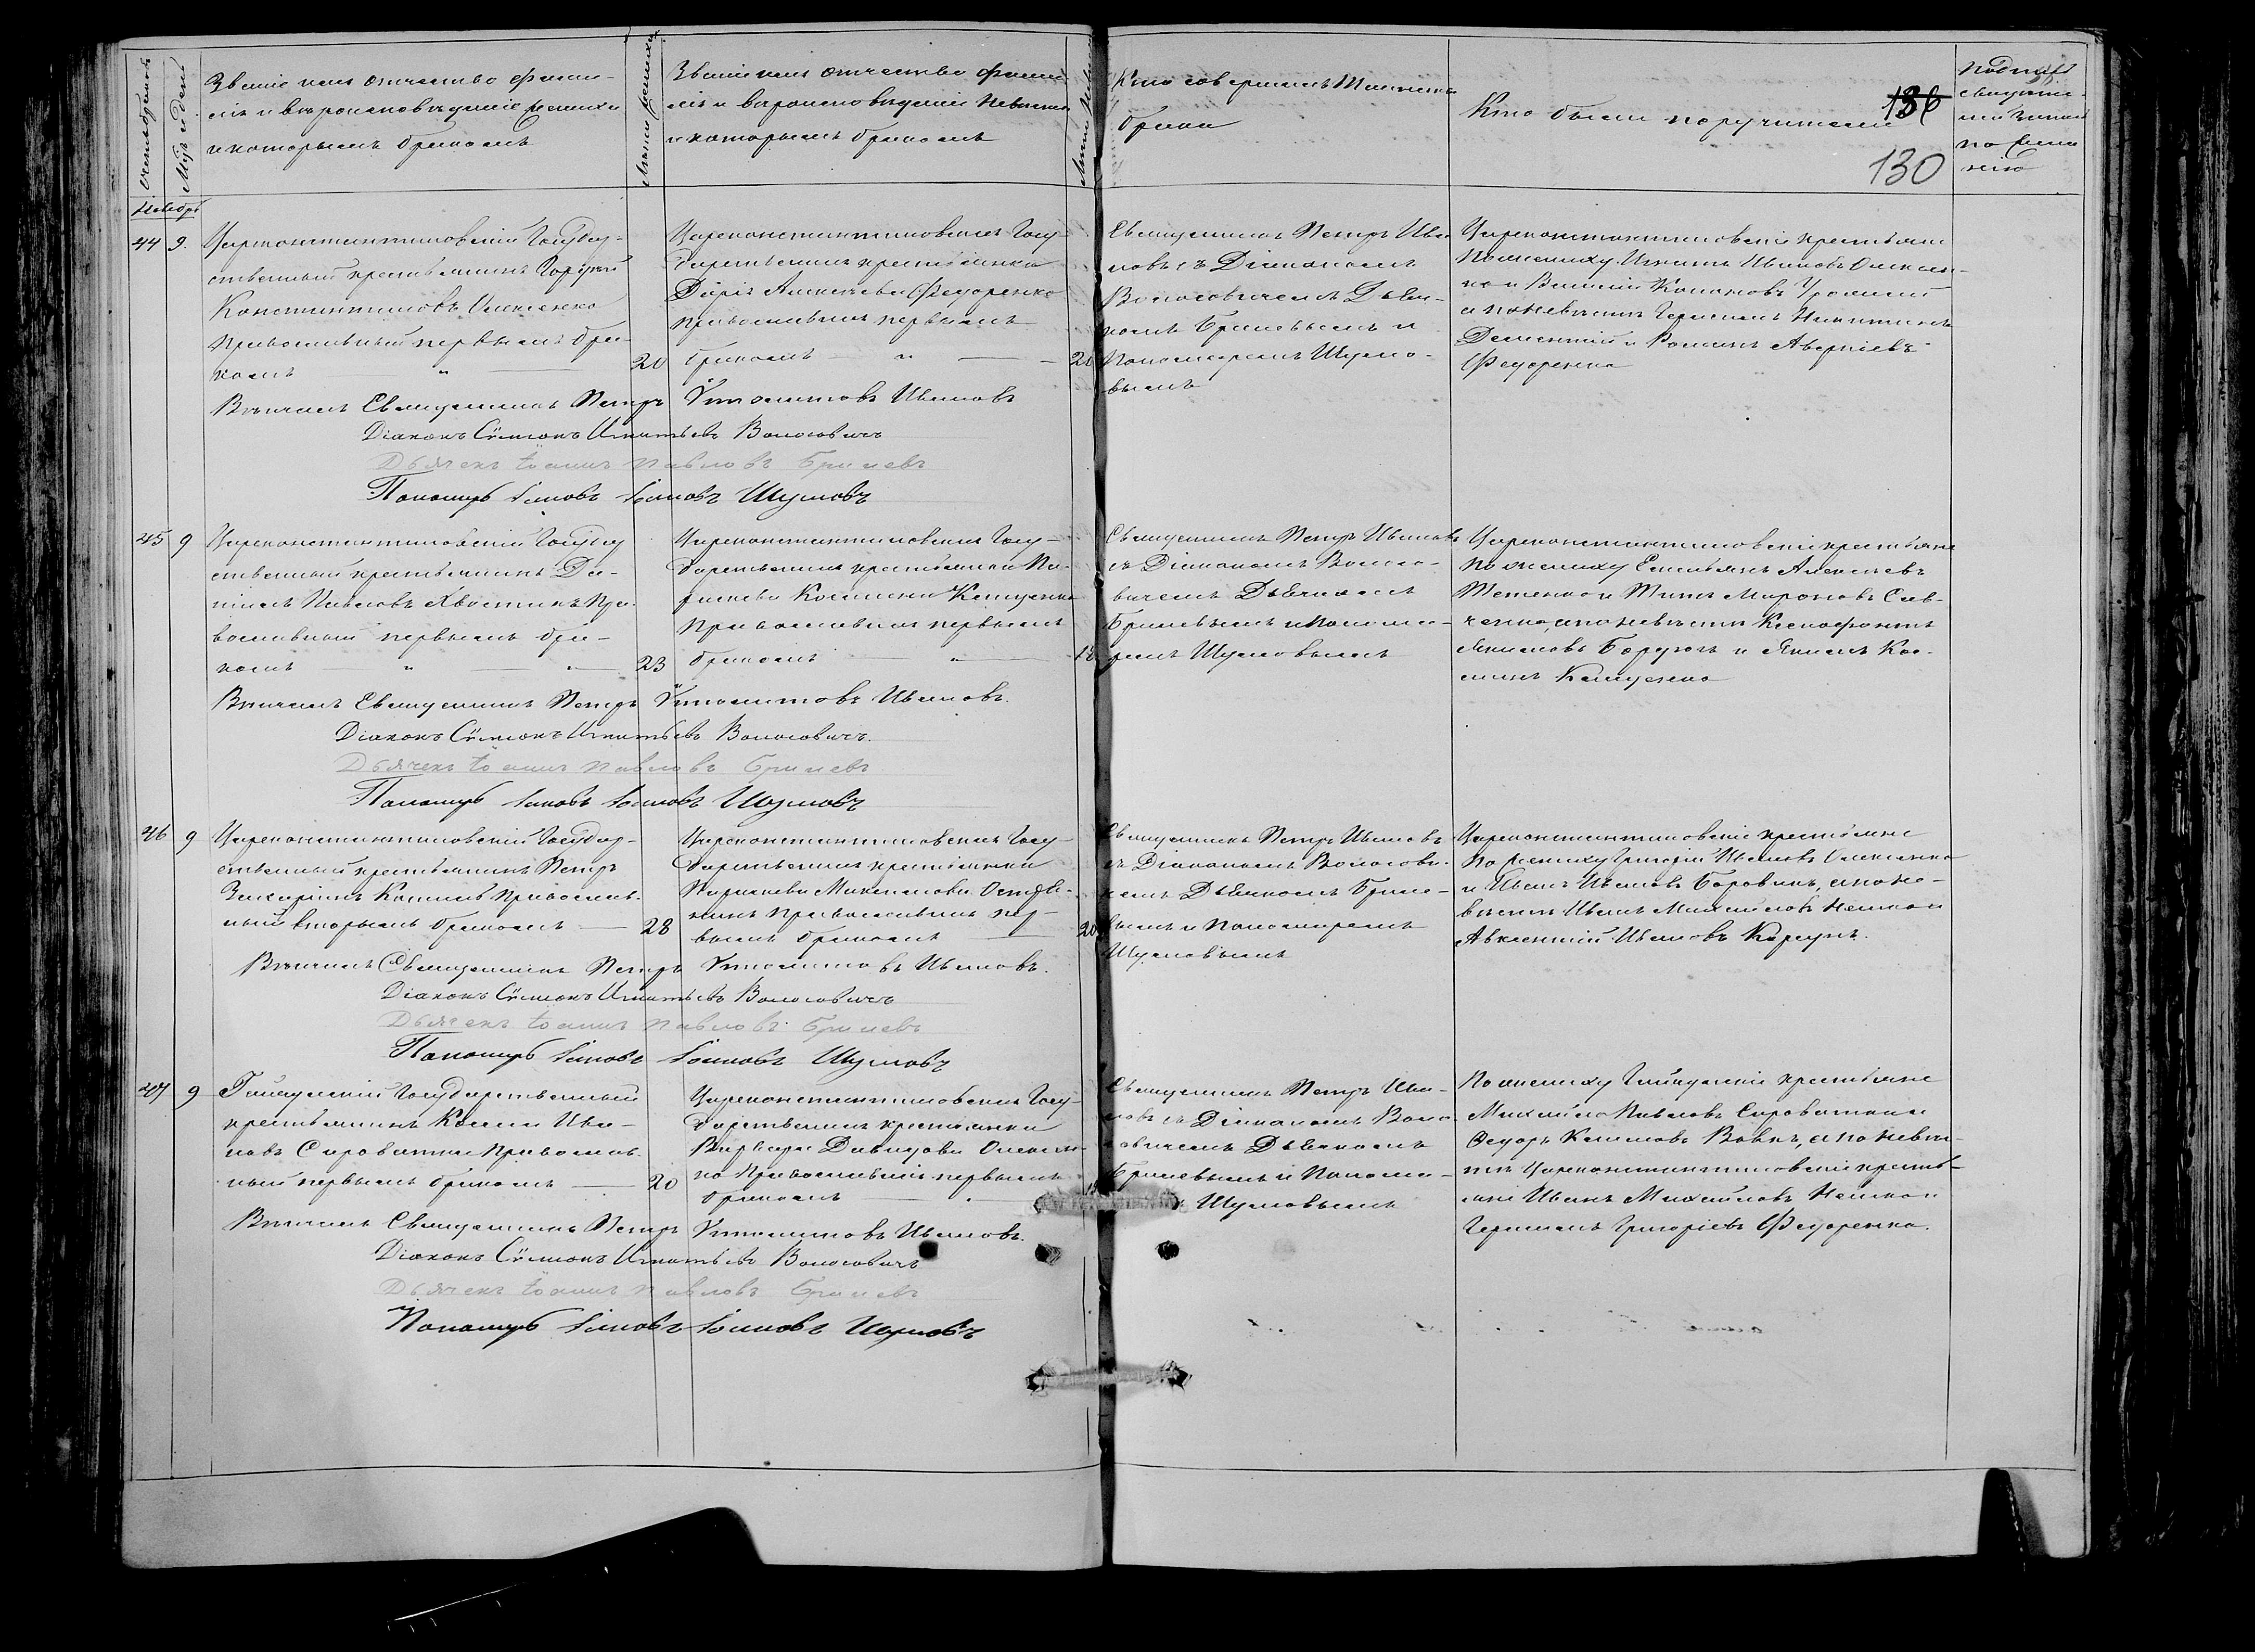 Счетъ браковъ
Мѣс. и день
Званіе имя отчество фами-
лія и вѣроисповѣданіе жениха
и которымъ бракомъ
Лѣта жениха
Званіе имя отчество фами
лія и вѣроисповѣданіе невѣсты
и которымъ бракомъ
Лѣта невѣсты
Кто совершалъ таинство
брака
Кто были поручители
136
130
подпись
свидѣте-
лей записи
по жела
нію
Ноябрь
44 9.
Цареконстантиновскій Государ-
ственный крестьянинъ
Константиновъ Олексенко
Православный первымъ бра-
комъ 20
Цареконстантиновская Госу-
дарственная крестьянка
Дарія Алексѣева Федоренко
православная первымъ
бракомъ 20
Священникъ Петръ Ива
новъ съ Діакономъ
Волосовичемъ Дьяч-
комъ Брилевымъ и
Пономаремъ Шумо-
вымъ
Цареконстантиновскіе крестьяне
По жениху Игнатъ Ивановъ Олексен-
ко и Василій Кононовъ
а по невѣстѣ Герасимъ Никитинъ
и Романъ Аверкіевъ
Федоренко
Вѣнчалъ Священникъ Петръ Ипполитовъ Ивановъ
Діаконъ Сѵмеонъ Игнатьевъ Волосовичъ
Дьячекъ Іоаннъ Павловъ Брилевъ
Пономарь Іаковъ Іоанновъ Шумовъ
45 9
Цареконстантиновскій Государ
ственный крестьянинъ Да-
ніилъ Павловъ Хвостикъ Пра-
вославный первымъ бра-
комъ 23
Цареконстантиновская Госу-
дарственная крестьянка Па-
раскева Косьмина Кащенко
Православная первымъ
бракомъ 18
Священникъ Петръ Ивановъ
съ Діакономъ Волосо-
вичемъ Дьячкомъ
Брилевымъ и Понома-
ремъ Шумовымъ
Цареконстантиновскіе крестьяне
По жениху Емельянъ Алексѣевъ
Тетенко и Титъ Мироновъ Сав-
ченко, а по невѣстѣ Ксенофонтъ
Якимовъ и Якимъ Кос-
минъ Кащенко
Вѣнчалъ Священникъ Петръ Ипполитовъ Ивановъ.
Діаконъ Сѵмеонъ Игнатьевъ Волосовичъ.
Дьячекъ Іоаннъ Павловъ Брилевъ
Пономарь Іаковъ Іоанновъ Шумовъ
46 9
Цареконстантиновскій Государ-
ственный крестьянинъ Петръ
Захаріинъ Православ-
ный вторымъ бракомъ 28
Цареконстантиновская Госу-
дарственная крестьянка
Параскева Максимова
православная пер-
вымъ бракомъ 20
Священникъ Петръ Ивановъ
съ Діакономъ Волосови-
чемъ Дьячкомъ Бриле-
вымъ и Пономаремъ
Шумовымъ
Цареконстантиновскіе крестьяне
По жениху Григорій Ивановъ Олексенко
и Иванъ Ивановъ Боровикъ, а по не-
вѣстѣ Иванъ Михайловъ
Авксентій Ивановъ Коржъ.
Вѣнчалъ Священникъ Петръ Ипполитовъ Ивановъ.
Діаконъ Сѵмеонъ Игнатьевъ Волосовичъ
Дьячекъ Іоаннъ Павловъ Брилевъ
Пономарь Іаковъ Іоанновъ Шумовъ
47 9
Гайчурскій Государственный
крестьянинъ Косма Ива-
новъ Сыроватка Православ
ный первымъ бракомъ 20
Цареконстантиновская Госу-
дарственная крестьянка
Варвара Давидова Олексен-
ко Православная первымъ
бракомъ
Священникъ Петръ Ива-
новъ съ Діакономъ Воло
совичемъ Дьячкомъ
Брилевымъ и Понома-
Шумовымъ
По жениху Гайчурскіе крестьяне
Михайло Павловъ Сыроватка и
Федоръ Климовъ Вовкъ, а по невѣс-
тѣ Цареконстантиновскіе кресть-
яне Иванъ Михайловъ
Герасимъ Григоріевъ Федоренко.
Вѣнчалъ Священникъ Петръ Ипполитовъ Ивановъ.
Діаконъ Сѵмеонъ Игнатьевъ Волосовичъ
Дьячекъ Іоаннъ Павловъ Брилевъ
Пономарь Іаковъ Іоанновъ Шумовъ